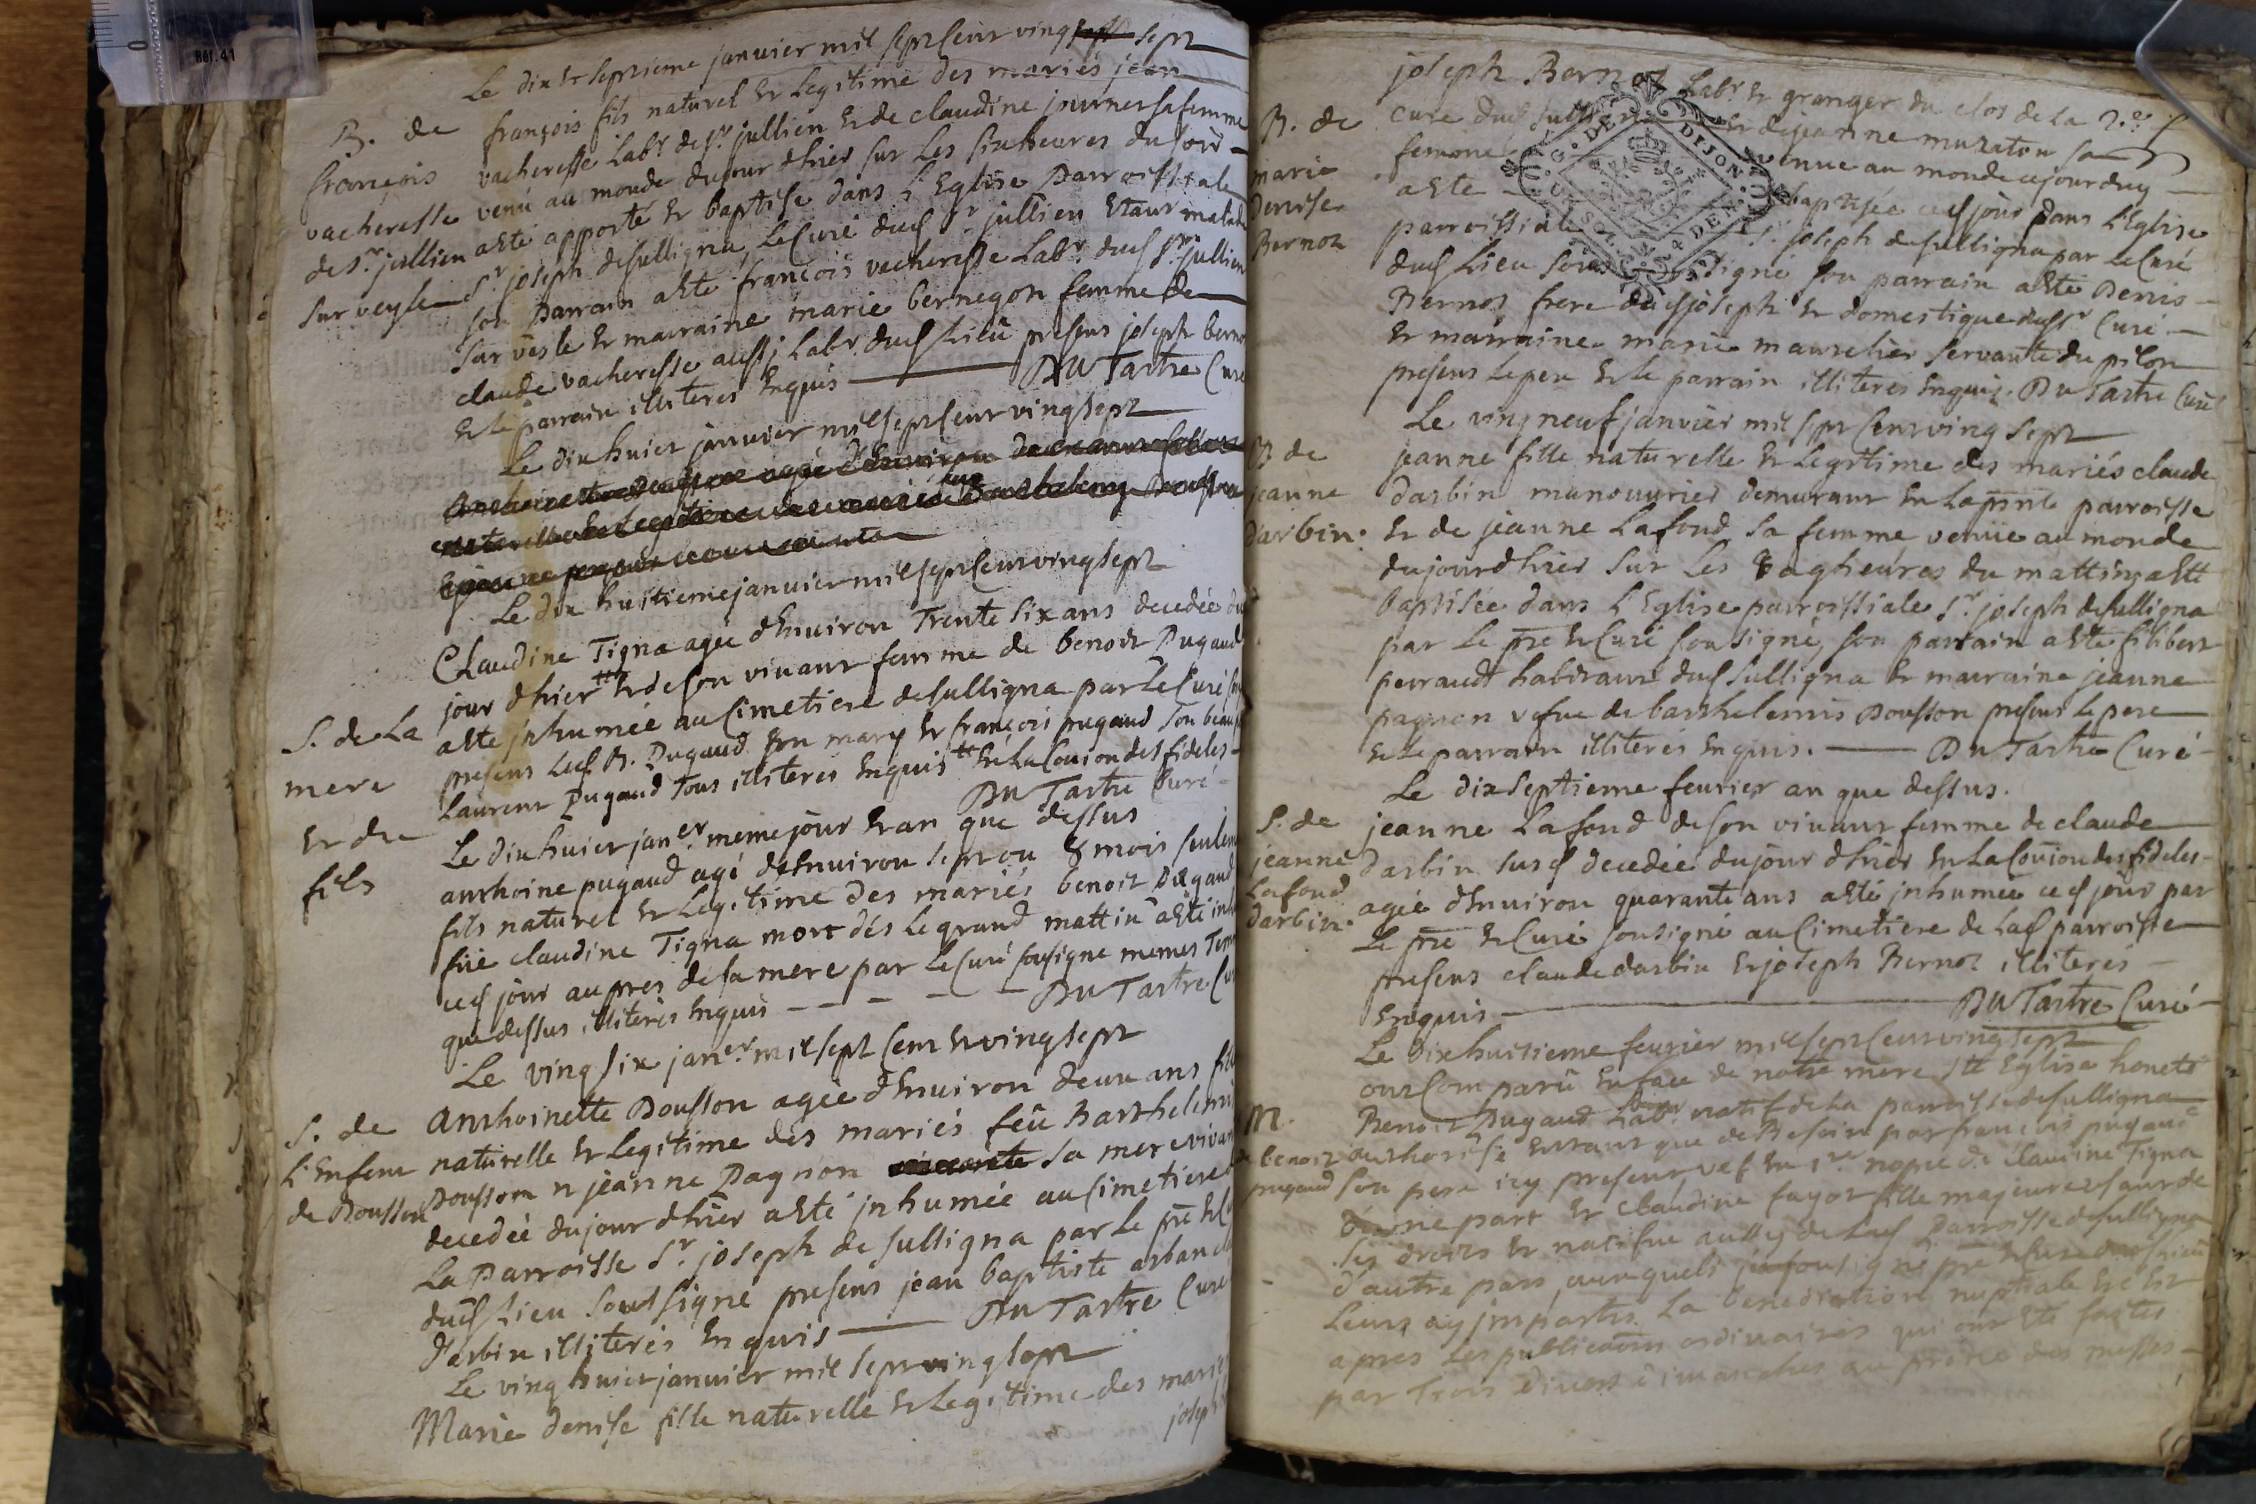 Réf. 41
0
Le dix et septieme janvier mil sept cent ving sept sept
B. de
françois
vacheresse
de sr. jullien
sur veyle
françois fils naturel et Legitime des mariés jean
vacheresse Labr. de sr. jullien et de claudine journet sa femme
venû au monde du jour dhier sur Les six heures du soir
a Eté apporté et baptise dans L'Eglise Parroissiale
sr. joseph de sulligna, Le Curé dud sr. jullien Etant malade
son Parrain a Eté françois vacheresse Labr. dud sr. jullien
sur vesle et marraine marie bernegon femme de
claude vacheresse aussj Labr. dud Lieu presens joseph bernoz
et le parrain illiteres Enquis Du Tartre Curé
Le dix huict janvier mil sept Cent ving sept
Le dix huitieme janvier mil sept Cent ving sept
S. de La
mere
et du
fils
Claudine Tigna agée d'Environ Trente six ans decedée du
jour d'hier et de son vivant femme de benoit Pugaud
a Eté jnhumée au Cimetiere de sulligna par Le Curé
presens Led B. Pugaud son mary et françois pugaud son beau
Laurent Pugaud Tous illiteres Enquis et en La Couion des fideles
Du Tartre Curé
Le dix huict janer. meme jour et an que dessus
anthoine pugaud agé d'Environ sept ou 8 mois seulem
fils naturel et Legitime des mariés benoit Pugaud
fue claudine Tigna mort dés Le grand mattin a Eté
ced jour aupres de sa mere par Le Curé sousigne memes
que dessus illiteres Enquis Du Tartre Cur
Le ving six janer. mil sept Cent et ving sept
S. de
L'Enfent
de Pousson
Anthoinette Pousson agée d'Environ deux ans
naturelle et Legitime des mariés feû Barthelemi
Pousson jeanne Pagnon sa mere vivan
decedée du jour d'hier a Eté jnhumée au Cimetiere
La Parroisse sr. joseph de sulligna par Le pre et
dud Lieu soussigné presens jean baptiste
darbin illiterés Enquis Du Tartre Curé
Le ving huict janvier mil sept ving sept
Marie denise fille naturelle et Legitime des marié
joseph
joseph Bernoz Labr. et granger du clos de La
B. de
marie
Denise
Bernoz
Curé dud et de jeanne muzaton sa
femme venue au monde cejourduy
a Eté baptisée ced jour dans L'Eglise
parroissiale sr. joseph de sulligna par Le Curé
dud Lieu signé son parrain a Eté Denis
Bernoz frere dud joseph et domestique dud sr Curé
et marraine marie maurelier servante du pilon
presens Le pere et le parrain illiteres Enquis. Du Tartre Curé
G. DE DIJON
Le ving neuf janvier mil sept Cent ving sept
B de
jeanne
darbin.
jeanne fille naturelle et Legitime des mariés claude
darbin manouvrier demurant En La parroisse
et de jeanne Lafond sa femme venüe au monde
du jour d'hier sur Les heures du mattin a Eté
baptisée dans L'Eglise parroissiale sr. joseph de sulligna
par Le pre et Curé sousigné, son parrain a Eté filibert
perraud habitant dud sulligna et marraine jeanne
pagnon vefve de barthelemis Pousson presens Le pere
et Le parrain illiterés Enquis. Du Tartre Curé
Le dix septieme fevrier an que dessus.
S. de
jeanne
Lafond
darbin.
jeanne Lafond de son vivant femme de claude
darbin susd decedée du jour d'hier En La Couion des fideles
agée d'Environ quarante ans a Eté jnhumée ced jour par
Le pre et Curé sousigné au Cimetiere de Lad parroisse
presens claude darbin et joseph Bernoz illiterés
Enquis Du Tartre Curé
Le dix huitieme fevrier mil sept Cent ving sept
M.
de benoit
pugaud
ont Comparû En face de notre mere ste Eglise honete
Benoit Pugaud Labr natif de La parroisse de sulligna
authorisé Entant que de Besoin par françois pugaud
son pere icy present, vef En 1re nopce de Claudine Tigna
d'une part et Claudine fayot fille majeure de
ses droits et native aussy de Lad Parroisse de sulligna
d'autre part, auxquels je sousigné pre et Curé dud Lieu
Leurs ay jmpartis La benediction nuptiale
apres Les publications ordinaires qui ont Eté faites
par Trois divers dimanches au prone des messes